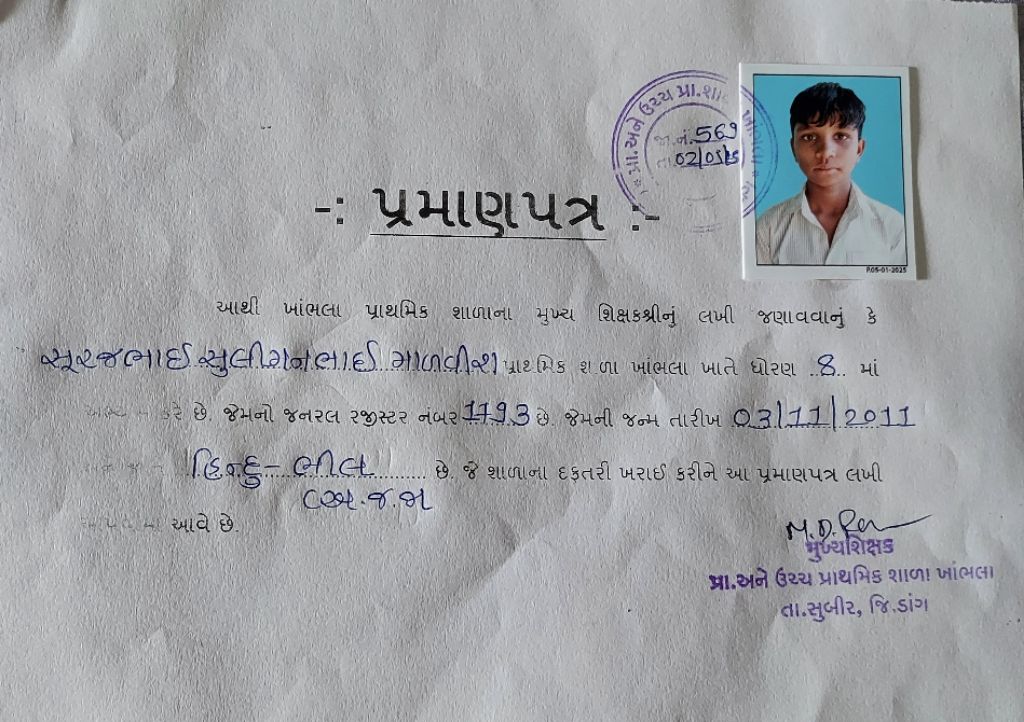 પ્રા.અને ઉચ્ચ પ્રા.શાળા ખાંભલા
જા.નં. 569
તા. 02/05/25
-: પ્રમાણપત્ર :-
P.05-01-2025
આથી ખાંભલા પ્રાથમિક શાળાના મુખ્ય શિક્ષકશ્રીનું લખી જણાવવાનું કે
સૂરજભાઈ સુલીગનભાઈ માળવીશ પ્રાથમિક શાળા ખાંભલા ખાતે ધોરણ .8. માં
કરે છે. જેમનો જનરલ રજીસ્ટર નંબર 1793 છે. જેમની જન્મ તારીખ 03/11/2011
હિન્દુ - ભીલ છે. જે શાળાના દફતરી ખરાઈ કરીને આ પ્રમાણપત્ર લખી
અ.જ.જા
આવે છે.
M.D.
મુખ્યશિક્ષક
પ્રા.અને ઉચ્ચ પ્રાથમિક શાળા ખાંભલા
તા.સુબીર, જિ.ડાંગ